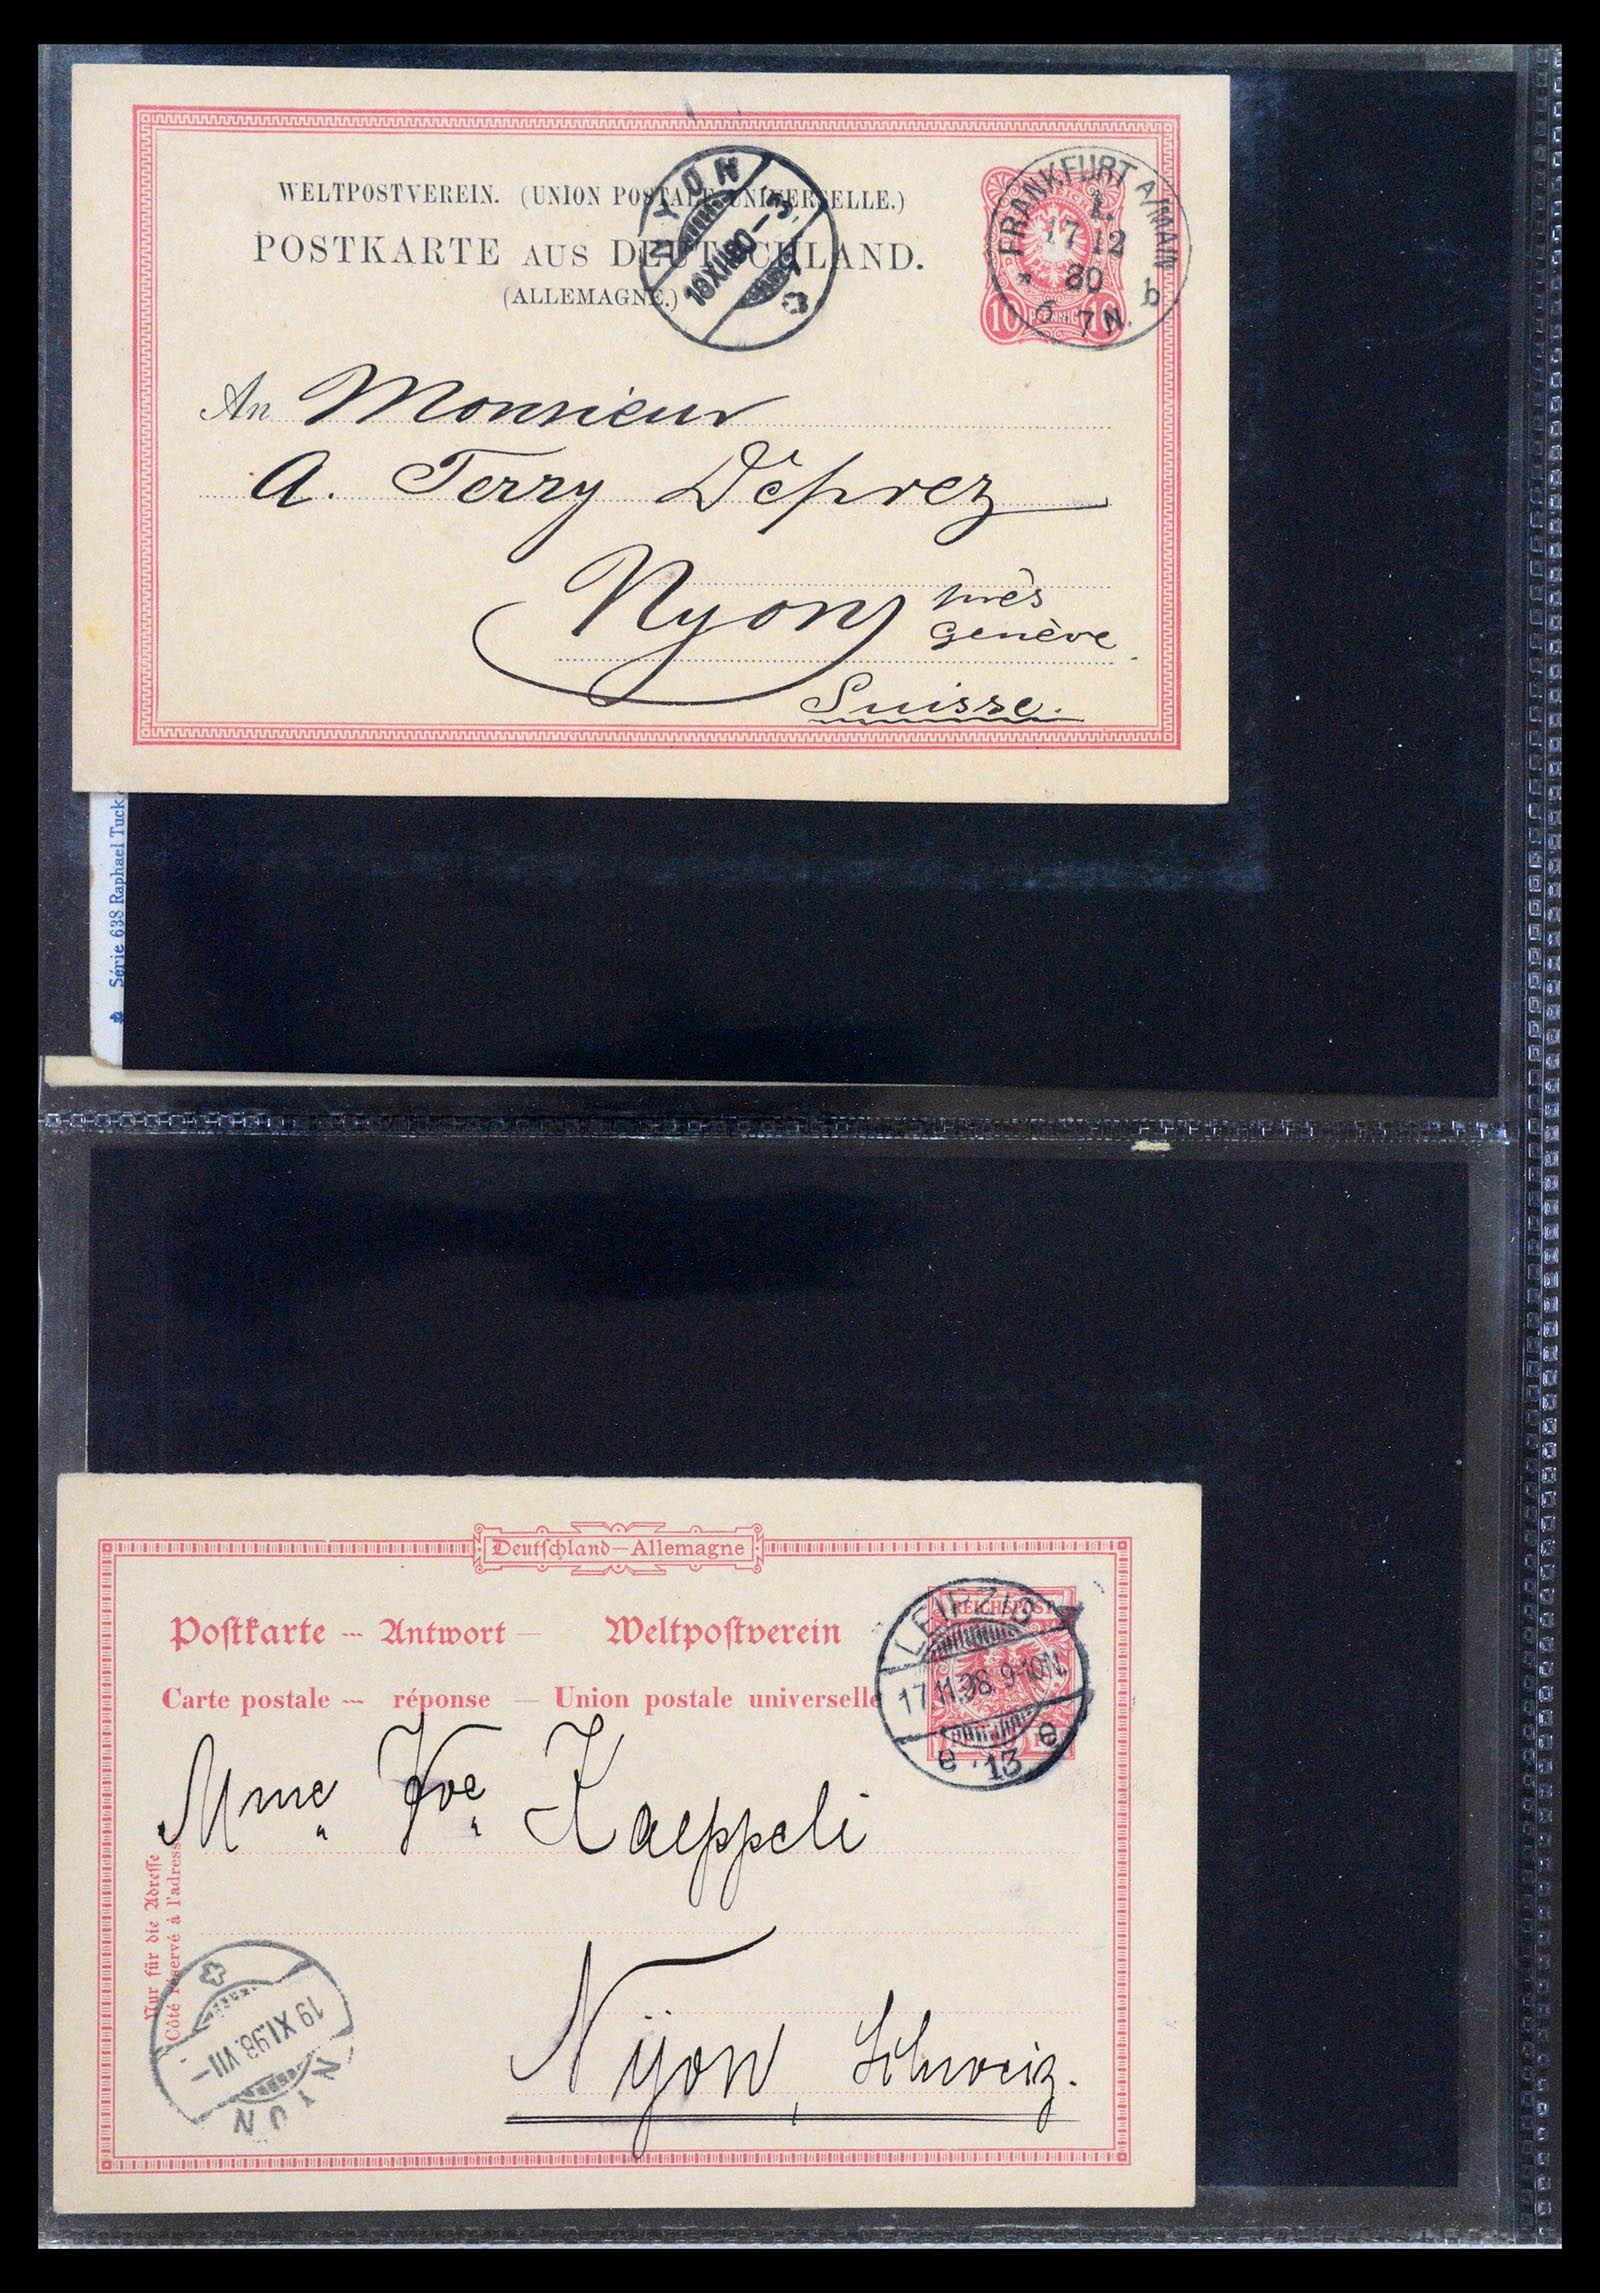 WELTPOSTVEREIN. (UNION POSTALE UNIVERSELLE.)
POSTKARTE AUS DEUTSCHLAND.
(ALLEMAGNE.)
NYON
18 XII 80 – 3
10 PFENNIG 10
FRANKFURT A/MAIN
1.
17 12
80
6-7 N.
b
An Monsieur
A. Terry Déprez
Nyon près
Genève
Suisse.
Série 638 Raphael Tuck
Deutſchland—Allemagne
Poſtkarte — Antwort — Weltpoſtverein
Carte postale — réponse — Union postale universelle
REICHSPOST
LEIPZIG
17.11.98. 9-10N.
e 13 e
Mme Vve Kaeppeli
Nur für die Adreſſe
Côté réservé à l'adresse
Nyon, Schweiz.
NYON
19 XI.98.VII–